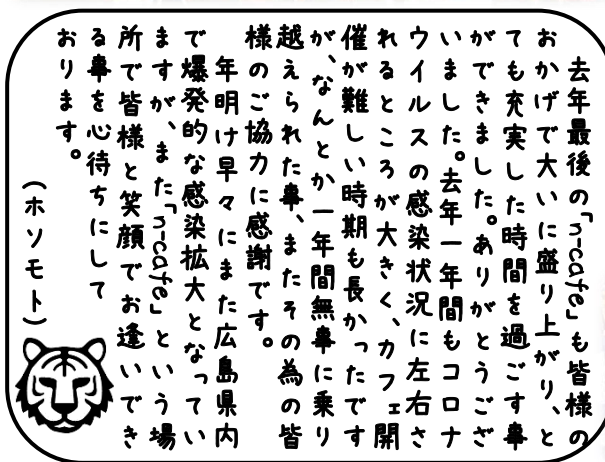 去年最後の「n-cafe」も皆様の
おかげで大いに盛り上がり、と
ても充実した時間を過ごす事
ができました。ありがとうござ
いました。去年一年間もコロナ
ウイルスの感染状況に左右さ
れるところが大きく、カフェ開
催が難しい時期も長かったです
が、なんとか一年間無事に乗り
越えられた事、またその為の皆
様のご協力に感謝です。
年明け早々にまた広島県内
で爆発的な感染拡大となってい
ますが、また「n-cafe」という場
所で皆様と笑顔でお逢いでき
る事を心待ちにして
おります。
(ホソモト)